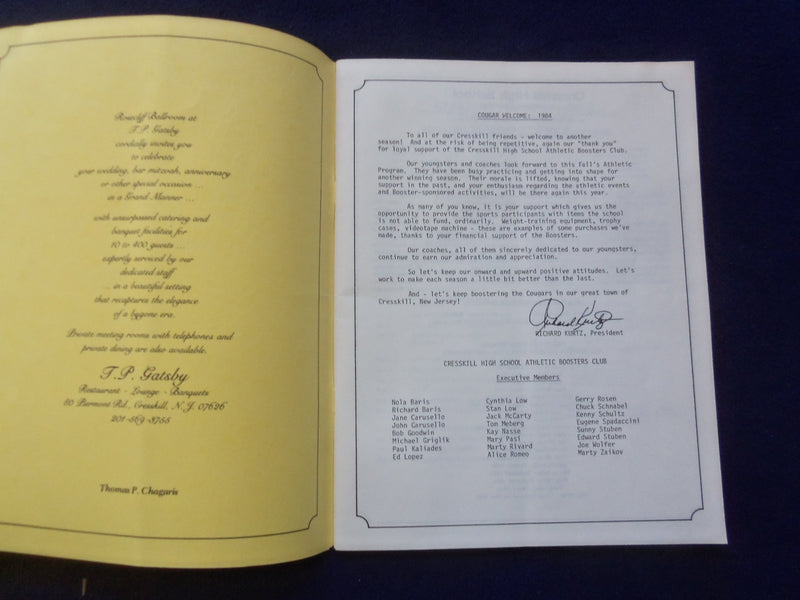 Rosecliff Ballroom at
T.P. Gatsby
cordially invites you
to celebrate
your wedding, bar mitzvah, anniversary
or other special occasion ...
in a Grand Manner ...
with unsurpassed catering and
banquet facilities for
10 to 400 guests ...
expertly serviced by our
dedicated staff
... in a beautiful setting
that recaptures the elegance
of a bygone era.
Private meeting rooms with telephones and
private dining are also available.
T.P. Gatsby
Restaurant - Lounge - Banquets
80 Piermont Rd., Cresskill, N.J. 07626
201-569-3755
Thomas P. Chagaris
COUGAR WELCOME: 1984
To all of our Cresskill friends - welcome to another
season! And at the risk of being repetitive, again our "thank you"
for loyal support of the Cresskill High School Athletic Boosters Club.
Our youngsters and coaches look forward to this Fall's Athletic
Program. They have been busy practicing and getting into shape for
another winning season. Their morale is lifted, knowing that your
support in the past, and your enthusiasm regarding the athletic events
and Booster-sponsored activities, will be there again this year.
As many of you know, it is your support which gives us the
opportunity to provide the sports participants with items the school
is not able to fund, ordinarily. Weight-training equipment, trophy
cases, videotape machine - these are examples of some purchases we've
made, thanks to your financial support of the Boosters.
Our coaches, all of them sincerely dedicated to our youngsters,
continue to earn our admiration and appreciation.
So let's keep our onward and upward positive attitudes. Let's
work to make each season a little bit better than the last.
And - let's keep boosting the Cougars in our great town of
Cresskill, New Jersey!
Richard Kurtz
RICHARD KURTZ, President
CRESSKILL HIGH SCHOOL ATHLETIC BOOSTERS CLUB
Executive Members
Nola Baris
Richard Baris
Jane Carusello
John Carusello
Bob Goodwin
Michael Griglik
Paul Kaliades
Ed Lopez
Cynthia Low
Stan Low
Jack McCarty
Tom Meberg
Kay Nasse
Mary Pasi
Marty Rivard
Alice Romeo
Gerry Rosen
Chuck Schnabel
Kenny Schultz
Eugene Spadaccini
Sunny Stuben
Edward Stuben
Joe Wolfer
Marty Zaikov